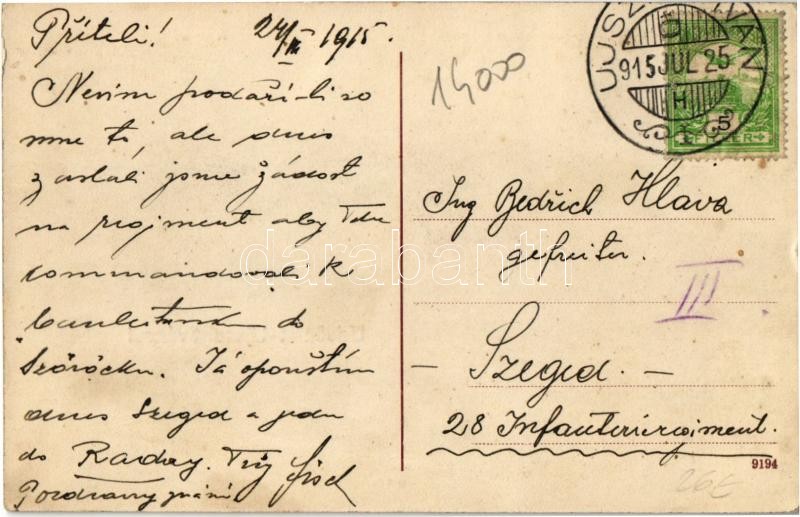 Příteli! 24/VII 1915.
Nevím podaří-li se
mne to, ale dnes
zaslali jsme žádost
na rejment aby Tebe
kommandovali k
bauleitunku do
Szöröcku. Já opouštím
dnes Szeged a jedu
do Raday. Tvůj
Pozdravy
14000
UJSZ VAN
915 JUL 25
H
5
FILLER
Ing Bedřich Hlava
gefreiter.
III.
— Szeged. —
28 Infanterieregiment.
9194
26E
darabanth